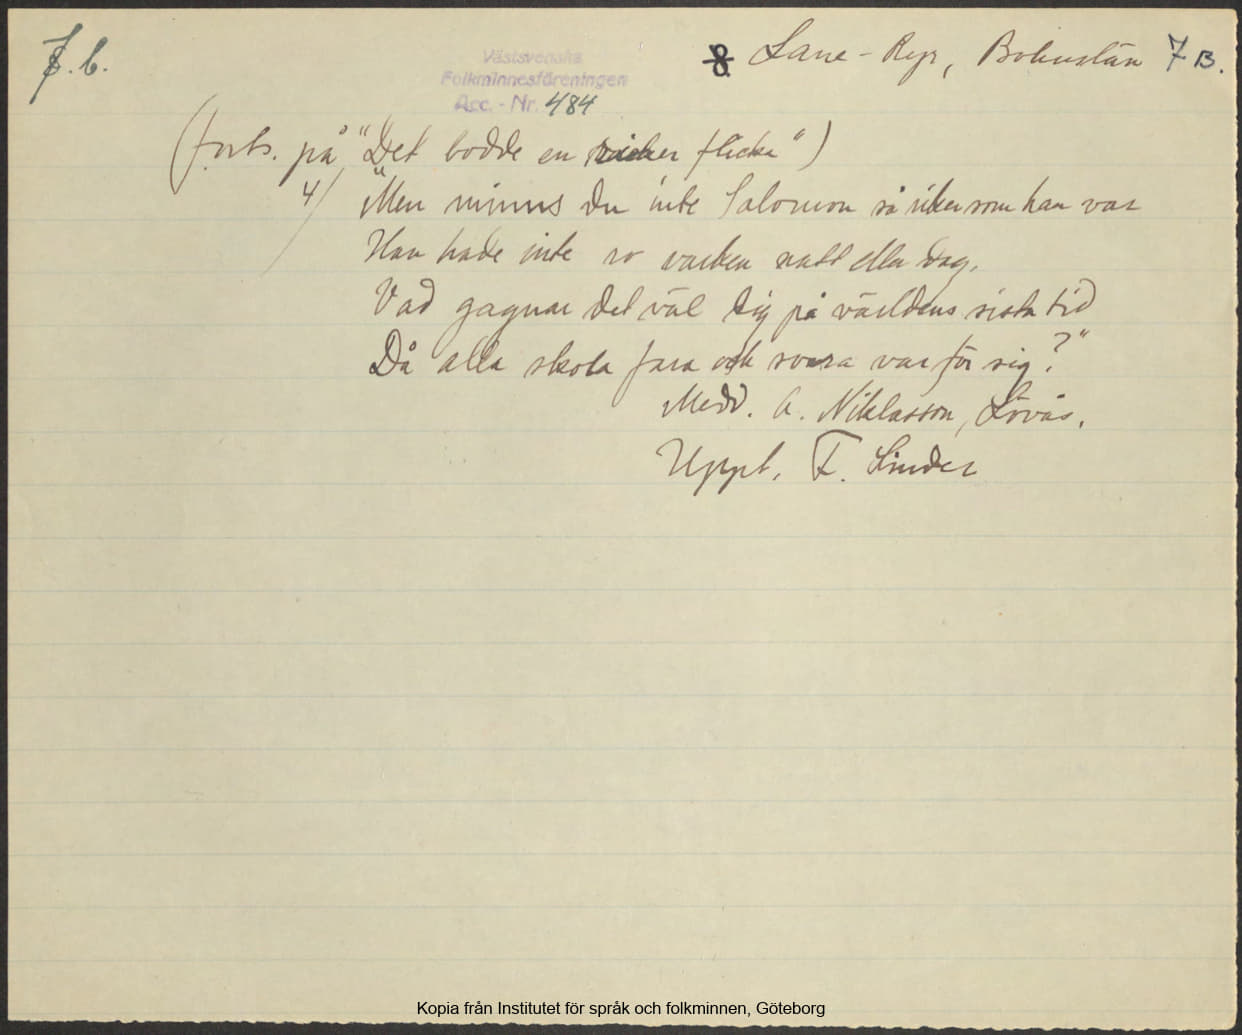 7.b.
8 Lane-Ryr, Bohuslän 7 B.
Västsvenska
Folkminnesföreningen
Acc. - Nr. 484
(forts. på "Det bodde en flicka")
4/ "Men minns du inte Salomon så riker som han var
Han hade inte ro varken natt eller dag.
Vad gagnar det väl dig på världens sista tid
Då alla skola fara och svara var för sig?"
Medd. A. Niklasson, Lövås.
Uppt. F. Linder
Kopia från Institutet för språk och folkminnen, Göteborg